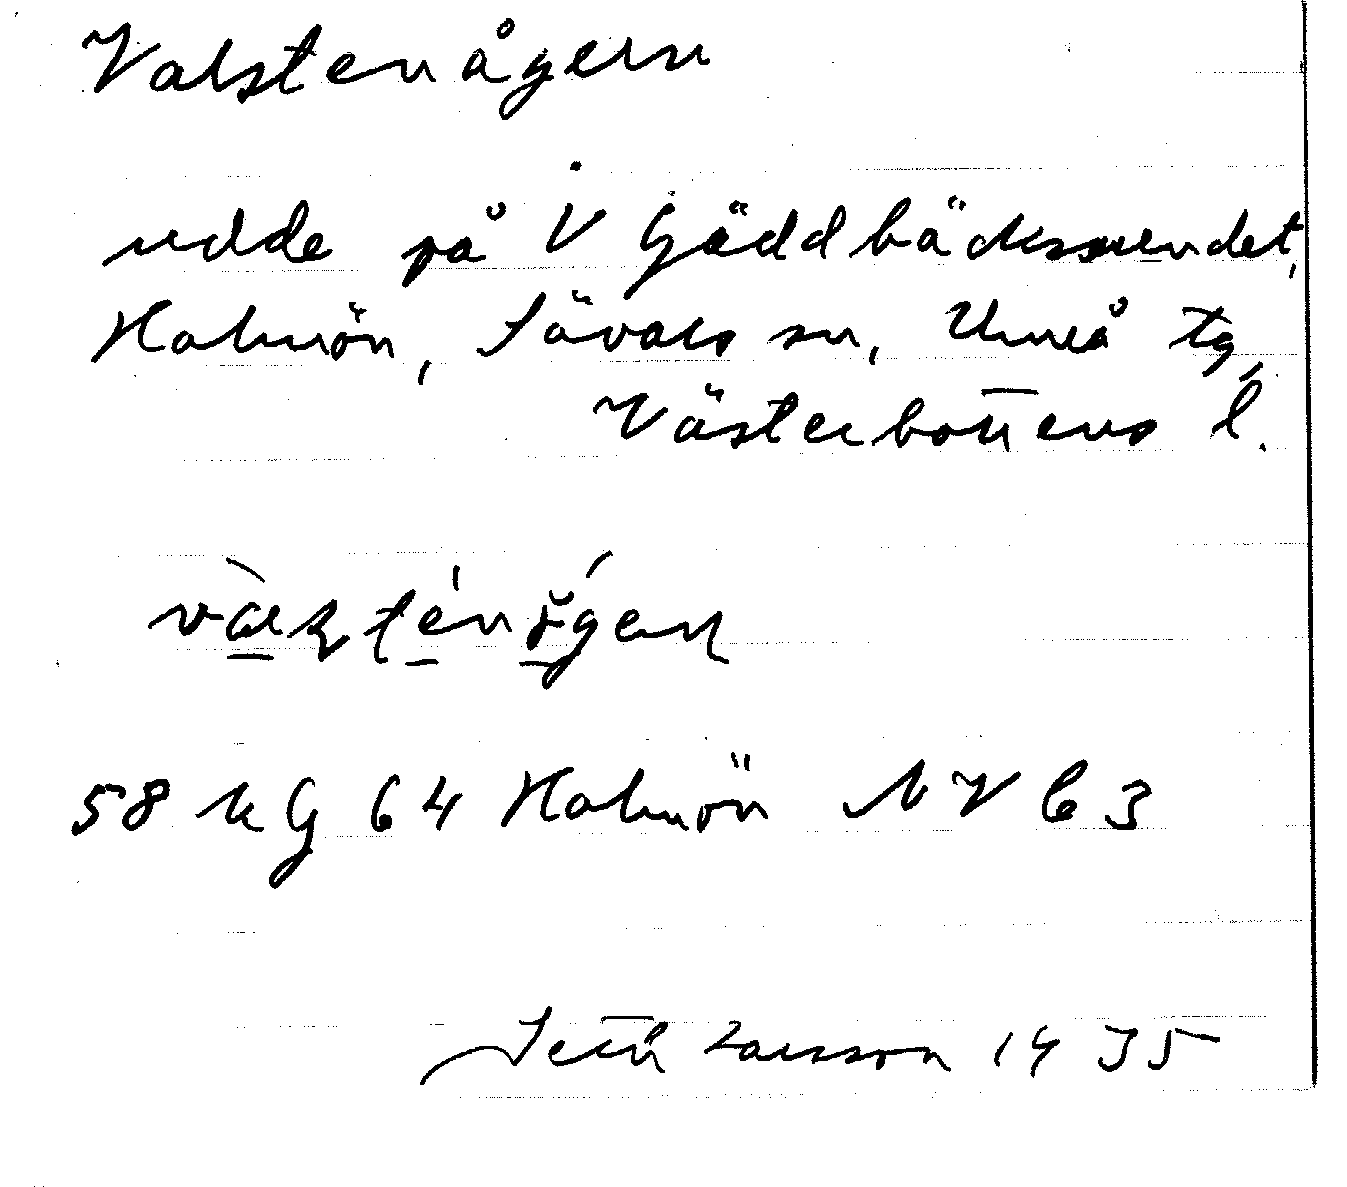 Valstenågern
udde på V Gäddbäckssundet,
Holmön, Sävars sn, Umeå tg,
Västerbottens l.
58 UG 64 Holmön NV b3
Seth Larsson 1935